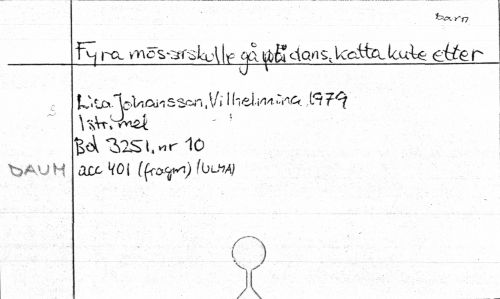 barn
Fyra mös-er skulle gå på dans, katta kute etter
Lisa Johansson, Vilhelmina, 1979
1 str, mel
Bd 3251, nr 10
DAUM acc 401 (fragm) (ULMA)